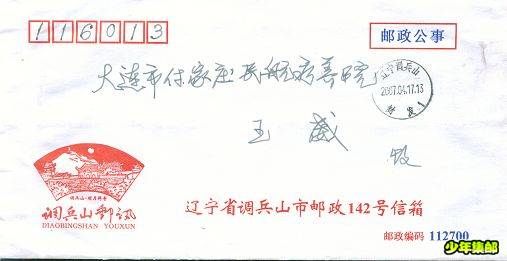 116013
邮政公事
大连市付家庄长航疗养院
辽宁调兵山
2007.04.17.13
王 威
收
调兵山·明月禅寺
调兵山邮讯
DIAOBINGSHAN YOUXUN
辽宁省调兵山市邮政142号信箱
邮政编码 112700
少年集邮